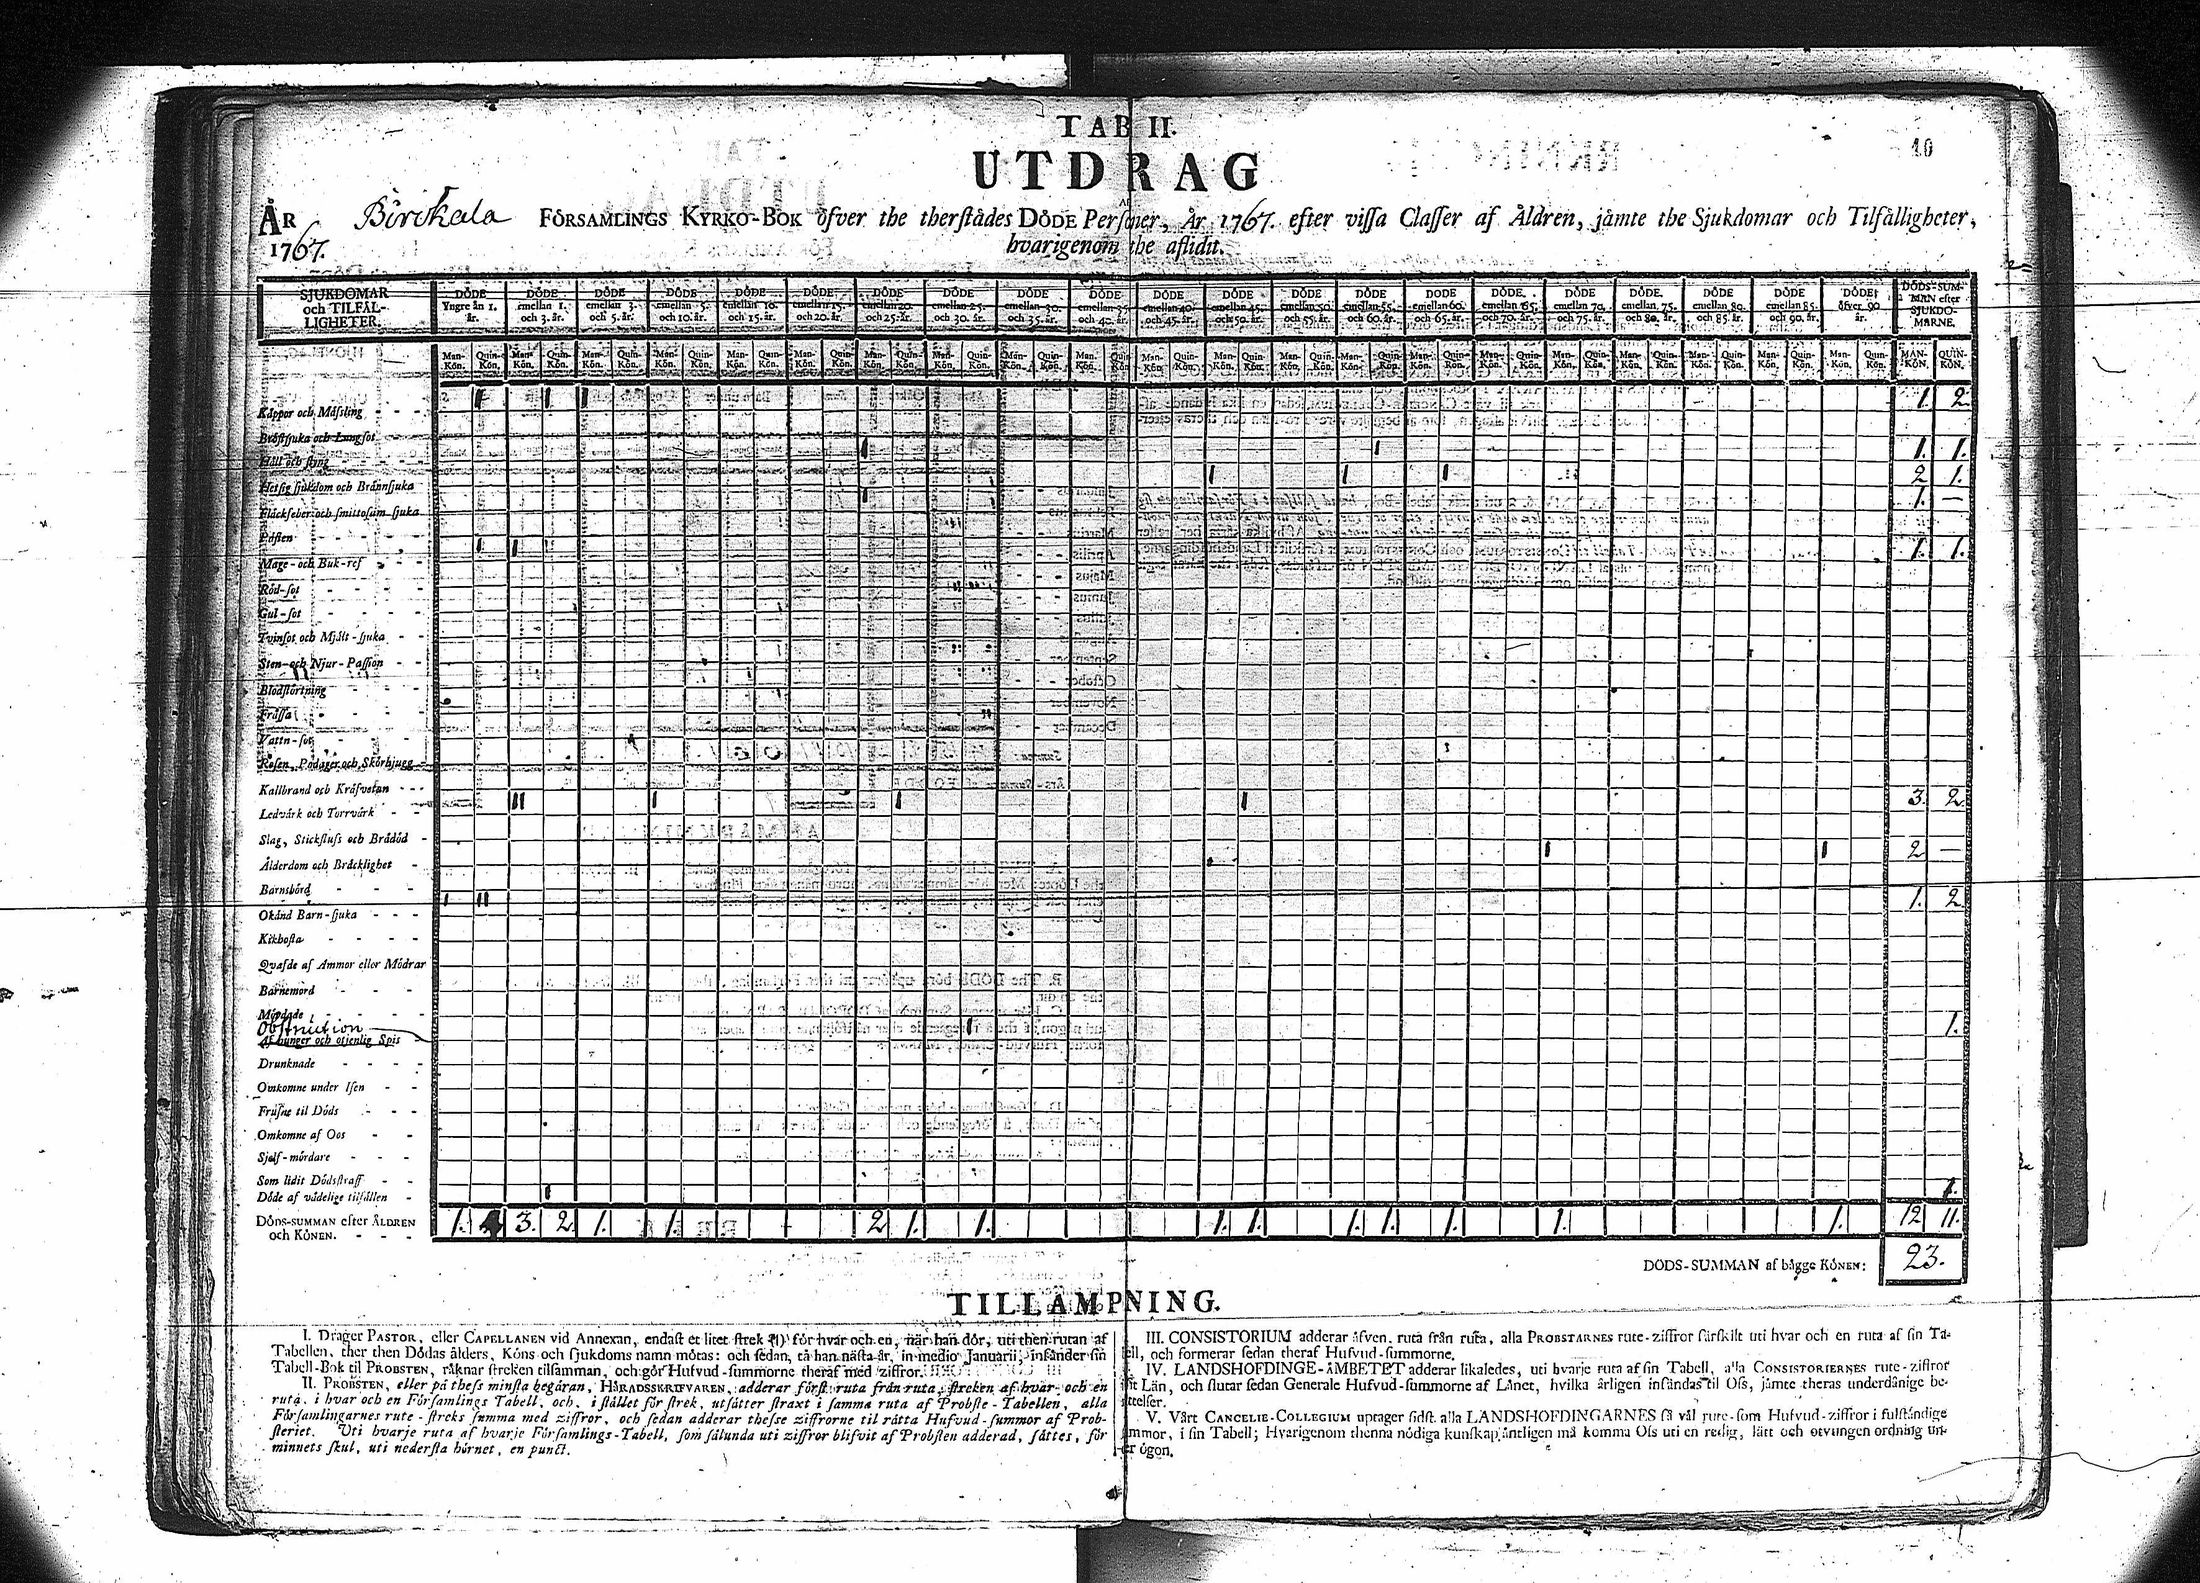 TAB II.
10
UTDRAG
ÅR 1767. Birckala FÖRSAMLINGS KYRKO-BOK öfver the therstädes DÖDE Personer, År 1767. efter vissa Classer af Åldren, jämte the Sjukdomar och Tilfälligheter,
hvarigenom the aflidit.
SJUKDOMAR och TILFÄL-LIGHETER.
DÖDE Yngre än 1. år.
DÖDE emellan 1. och 3. år.
DÖDE emellan 3. och 5. år.
DÖDE emellan 5. och 10. år.
DÖDE emellan 10. och 15. år.
DÖDE emellan 15. och 20. år.
DÖDE emellan 20. och 25. år.
DÖDE emellan 25. och 30. år.
DÖDE emellan 30. och 35. år.
DÖDE emellan 35. och 40. år.
DÖDE emellan 40. och 45. år.
DÖDE emellan 45. och 50. år.
DÖDE emellan 50. och 55. år.
DÖDE emellan 55. och 60. år.
DÖDE emellan 60. och 65. år.
DÖDE emellan 65. och 70. år.
DÖDE emellan 70. och 75. år.
DÖDE emellan 75. och 80. år.
DÖDE emellan 80. och 85. år.
DÖDE emellan 85. och 90. år.
DÖDE öfver 90 år.
DÖDS-SUM-MAN efter SJUKDO-MARNE.
Man-Kön. Quin-Kön. Man-Kön. Quin-Kön. Man-Kön. Quin-Kön. Man-Kön. Quin-Kön. Man-Kön. Quin-Kön. Man-Kön. Quin-Kön. Man-Kön. Quin-Kön. Man-Kön. Quin-Kön. Man-Kön. Quin-Kön. Man-Kön. Quin-Kön. Man-Kön. Quin-Kön. Man-Kön. Quin-Kön. Man-Kön. Quin-Kön. Man-Kön. Quin-Kön. Man-Kön. Quin-Kön. Man-Kön. Quin-Kön. Man-Kön. Quin-Kön. Man-Kön. Quin-Kön. Man-Kön. Quin-Kön. Man-Kön. Quin-Kön. Man-Kön. Quin-Kön. MAN-KÖN. QUIN-KÖN.
Koppor och Mässling - - - I I I 1. 2
Bröstsjuka och Lungsot
Håll och styng - - - I I 1. 1.
Hetsig sjukdom och Brännsjuka I I I 2 1.
Fläckfeber och smittosam sjuka I 1. —
Pästen - - - -
Mage- och Buk-ref - - I I 1. 1.
Röd-sot - - - -
Gul-sot - - - -
Tvinsot och Mjält-sjuka - -
Sten- och Njur-Passion - -
Blodstörtning - - -
Frässa - - - -
Vattn-sot - - -
Rosen, Podager och Skörbjugg -
Kallbrand och Kräfvetan - - -
Ledvärk och Torrvärk - - II I I I 3. 2.
Slag, Stickfluss och Brådöd -
Ålderdom och Bräcklighet - I I 2 —
Barnsbörd - - -
Okänd Barn-sjuka - - - I II 1. 2.
Kikhosta - - - -
Qvafde af Ammor eller Mödrar
Barnemord - - -
Mördade - - - -
Obstruction I 1.
Af hunger och otjenlig Spis
Drunknade - - - -
Omkomne under Isen - -
Frusne til Döds - - -
Omkomne af Oos - -
Sjelf-mördare - - -
Som lidit Dödsstraff - -
Döde af vådelige tilfällen - I 1.
DÖDS-SUMMAN efter ÅLDREN och KÖNEN. - - - 1. 4 3. 2. 1. 1. 2 1. 1. 1. 1. 1. 1. 1. 1. 1. 12 11.
DÖDS-SUMMAN af bägge KÖNEN: 23.
TILLÄMPNING.
I. Drager PASTOR, eller CAPELLANEN vid Annexan, endast et litet strek (I) för hvar och en, när han dör, uti then rutan af
Tabellen, ther then Dödas ålders, Köns och sjukdoms namn mötas: och sedan, tå han nästa år, in medio Januarii, insänder sin
Tabell-Bok til PROBSTEN, räknar streken tilsamman, och gör Hufvud-summorne theraf med ziffror.
II. PROBSTEN, eller på thess minsta begäran, HÄRADSSKRIFVAREN, adderar först ruta från ruta, streken af hvar och en
ruta, i hvar och en Församlings Tabell, och, i stället för strek, utsätter straxt i samma ruta af Probste-Tabellen, alla
Församlingarnes rute-streks summa med ziffror, och sedan adderar thesse ziffrorne til rätta Hufvud-summor af Prob-
steriet. Uti hvarje ruta af hvarje Församlings-Tabell, som sålunda uti ziffror blifvit af Probsten adderad, sättes, för
minnets skul, uti nedersta hörnet, en punct.
III. CONSISTORIUM adderar äfven, ruta från ruta, alla PROBSTARNES rute-ziffror särskilt uti hvar och en ruta af sin Ta-
bell, och formerar sedan theraf Hufvud-summorne.
IV. LANDSHOFDINGE-ÄMBETET adderar likaledes, uti hvarje ruta af sin Tabell, alla CONSISTORIERNES rute-ziffror
i sit Län, och slutar sedan Generale Hufvud-summorne af Länet, hvilka årligen insändas til Oss, jämte theras underdånige be-
rättelser.
V. Vårt CANCELIE-COLLEGIUM uptager sidst alla LANDSHOFDINGARNES så väl rute-som Hufvud-ziffror i fulständige
summor, i sin Tabell; Hvarigenom thenna nödiga kunskap äntligen må komma Oss uti en redig, lätt och otvungen ordning un-
der ögon.